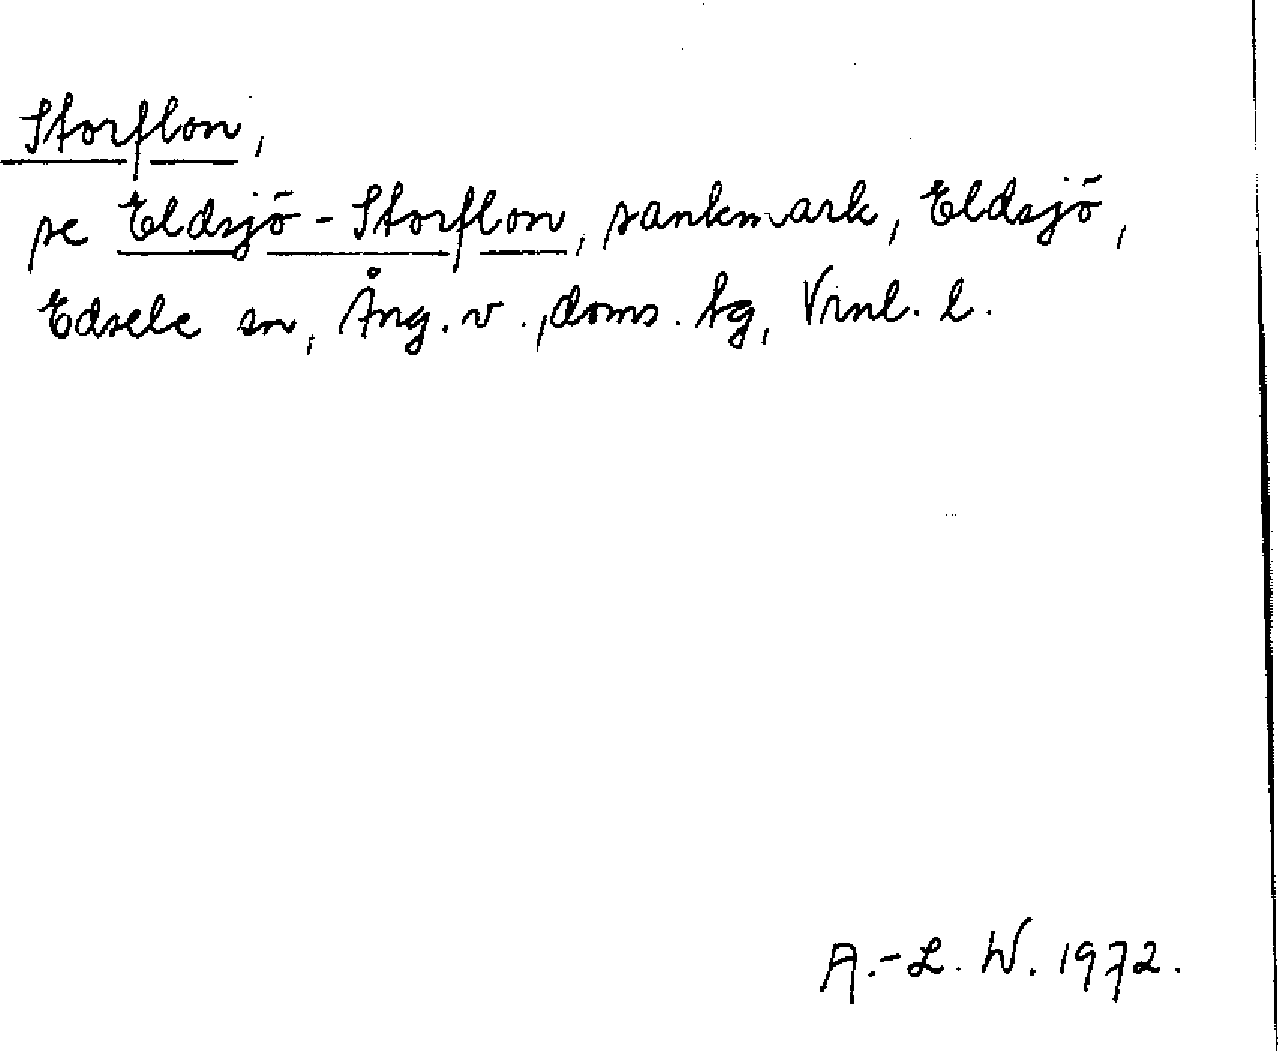 Storflon,
se Eldsjö-Storflon, sankmark, Eldsjö,
Edsele sn, Ång. v., doms. tg, Vnl. l.
A.-L. W. 1972.